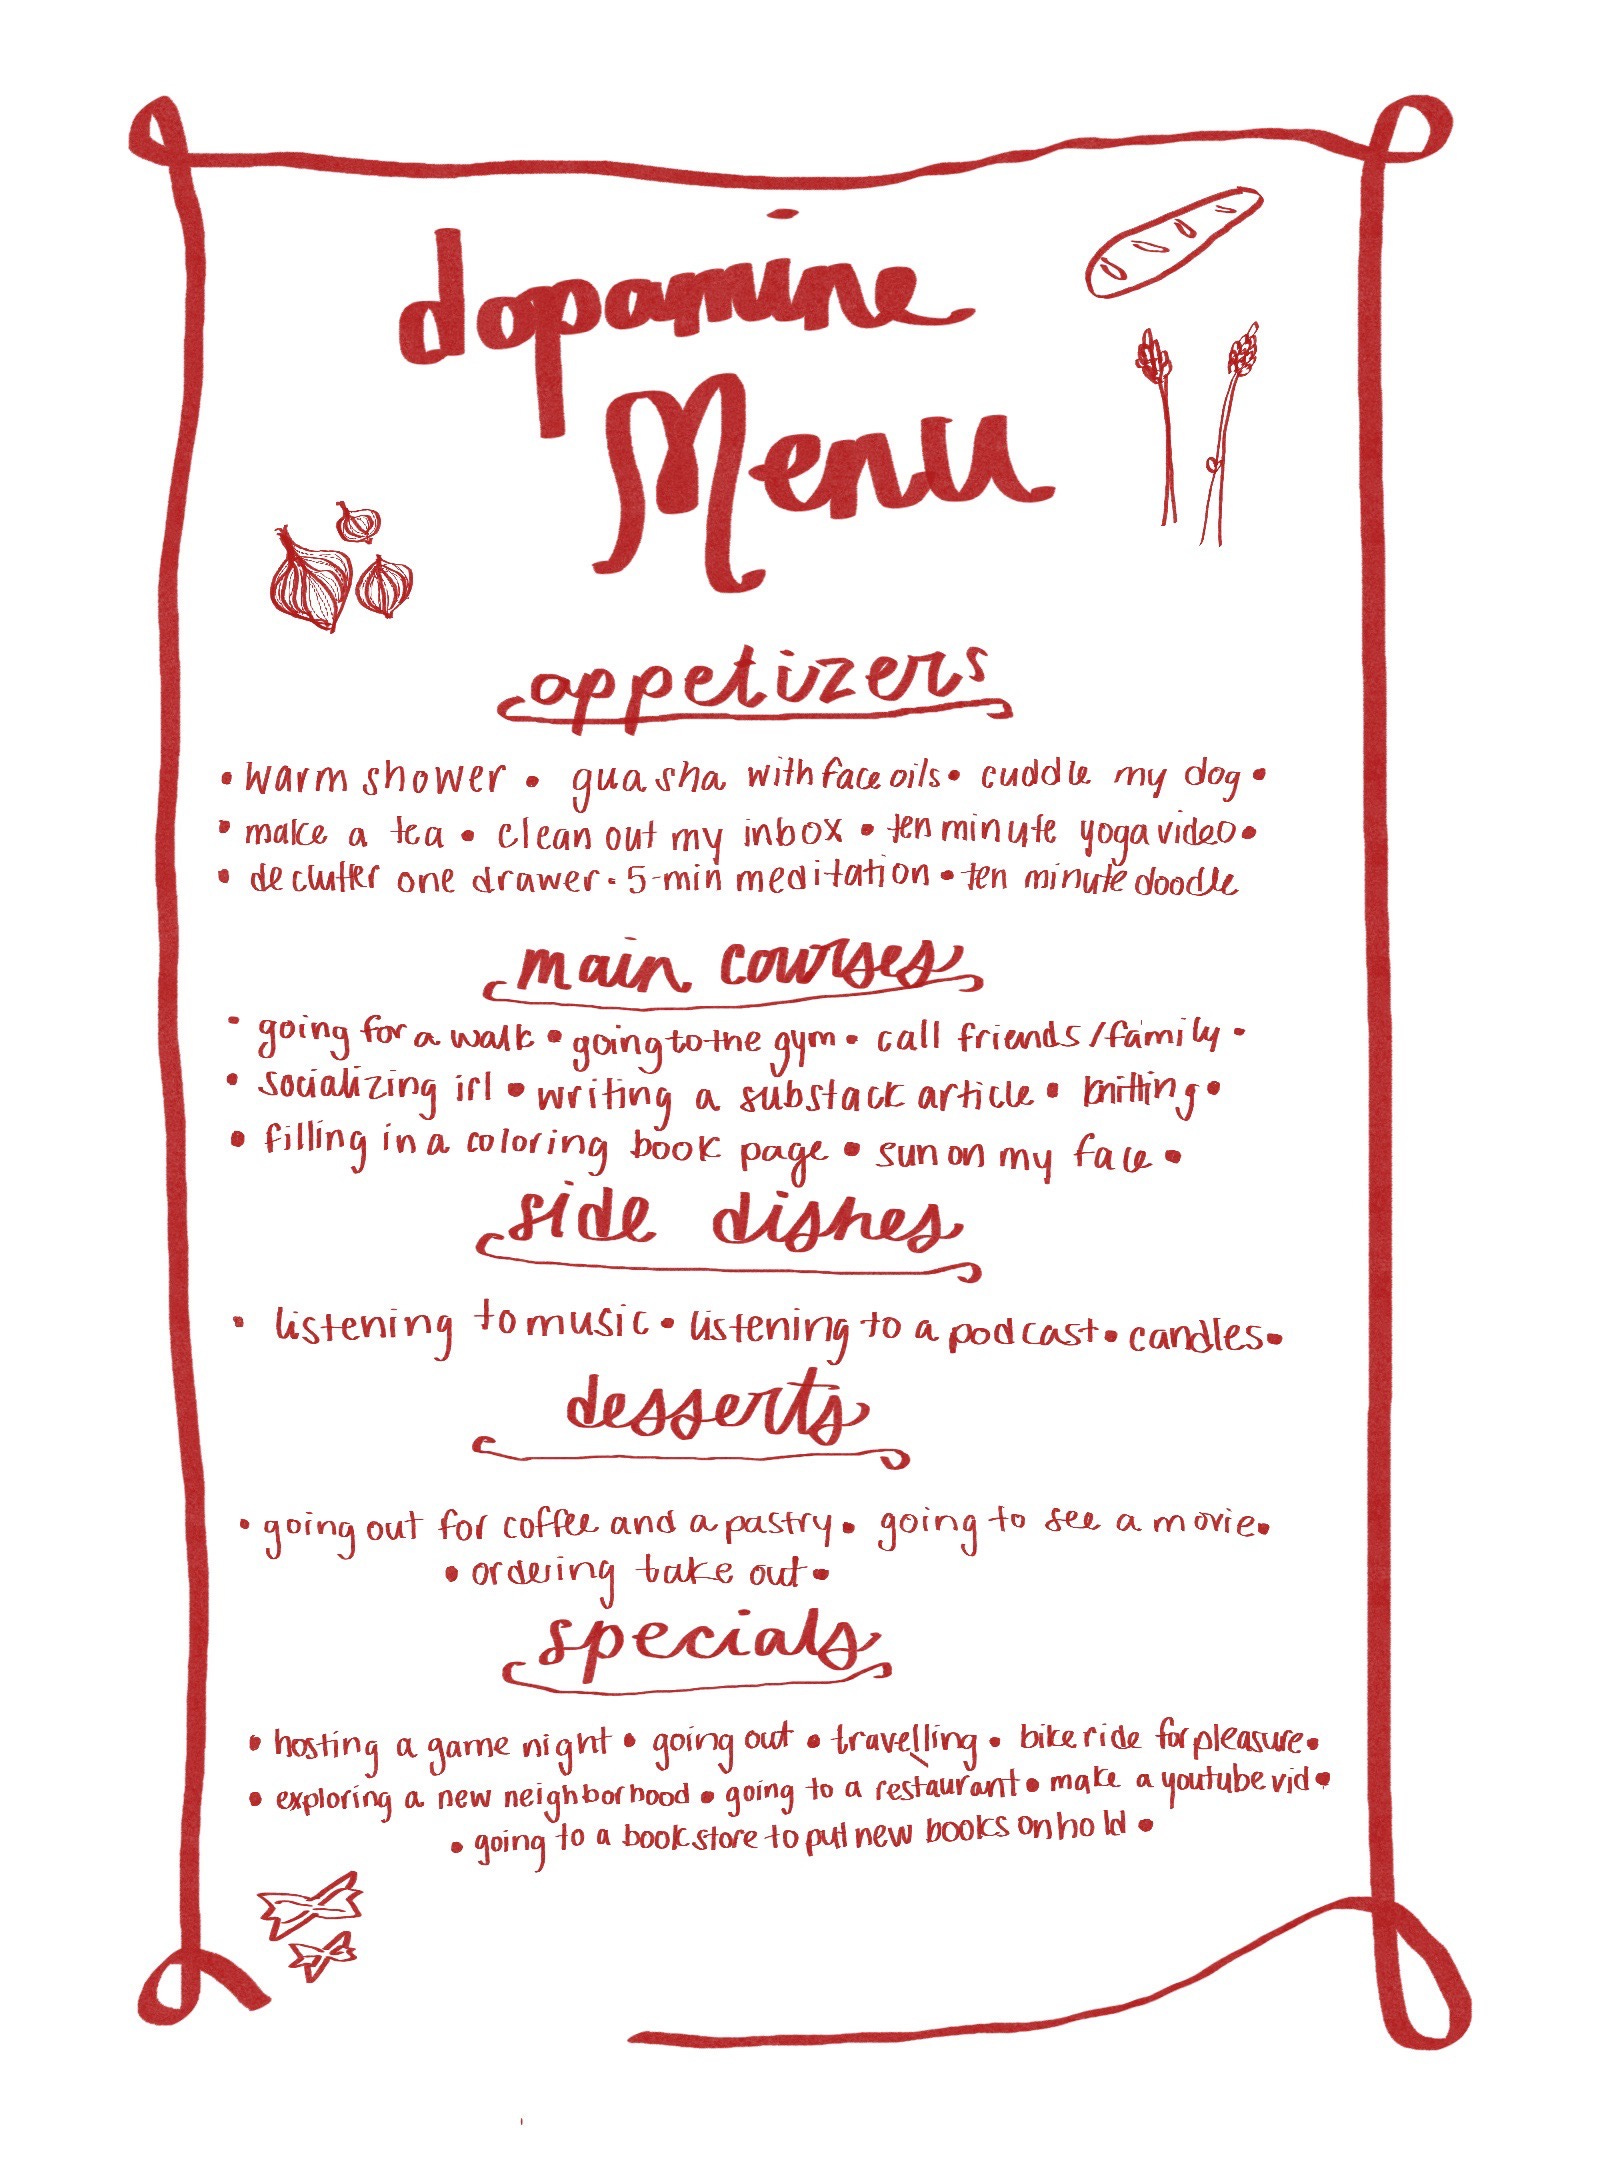 dopamine
Menu
appetizers
• warm shower • gua sha with face oils • cuddle my dog •
• make a tea • clean out my inbox • ten minute yoga video •
• declutter one drawer • 5-min meditation • ten minute doodle
main courses
• going for a walk • going to the gym • call friends/family •
• socializing irl • writing a substack article • knitting •
• filling in a coloring book page • sun on my face •
side dishes
• listening to music • listening to a podcast • candles •
desserts
• going out for coffee and a pastry • going to see a movie •
• ordering take out •
specials
• hosting a game night • going out • travelling • bike ride for pleasure •
• exploring a new neighborhood • going to a restaurant • make a youtube vid •
• going to a bookstore to put new books on hold •